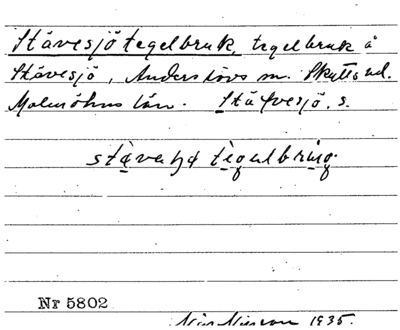 Stävesjö tegelbruk, tegelbruk å
Stävesjö, Anderslövs sn. Skytts hd.
Malmöhus län. Stäfvesjö, s.
Nr 5802
Nils Nilsson 1935.